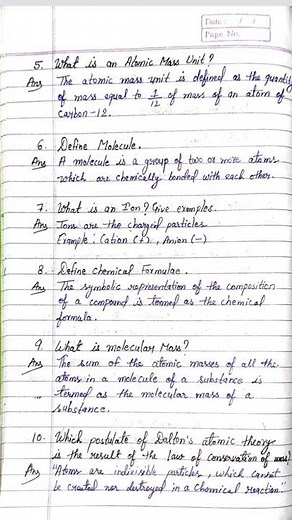 Date : / /
Page No.
5. What is an Atomic Mass Unit?
Ans The atomic mass unit is defined as the quantity
of mass equal to 1/12 of mass of an atom of
Carbon-12.
6. Define Molecule.
Ans A molecule is a group of two or more atoms
which are chemically bonded with each other.
7. What is an Ion? Give examples.
Ans Ions are the charged particles
Example : Cation (+), Anion (-)
8. Define chemical Formulae.
Ans The symbolic representation of the composition
of a compound is termed as the chemical
formula.
9. What is molecular Mass?
Ans The sum of the atomic masses of all the
atoms in a molecule of a substance is
termed as the molecular mass of a
substance.
10. Which postulate of Dalton's atomic theory
is the result of the law of conservation of mass?
Ans "Atoms are indivisible particles, which cannot
be created nor destroyed in a chemical reaction."